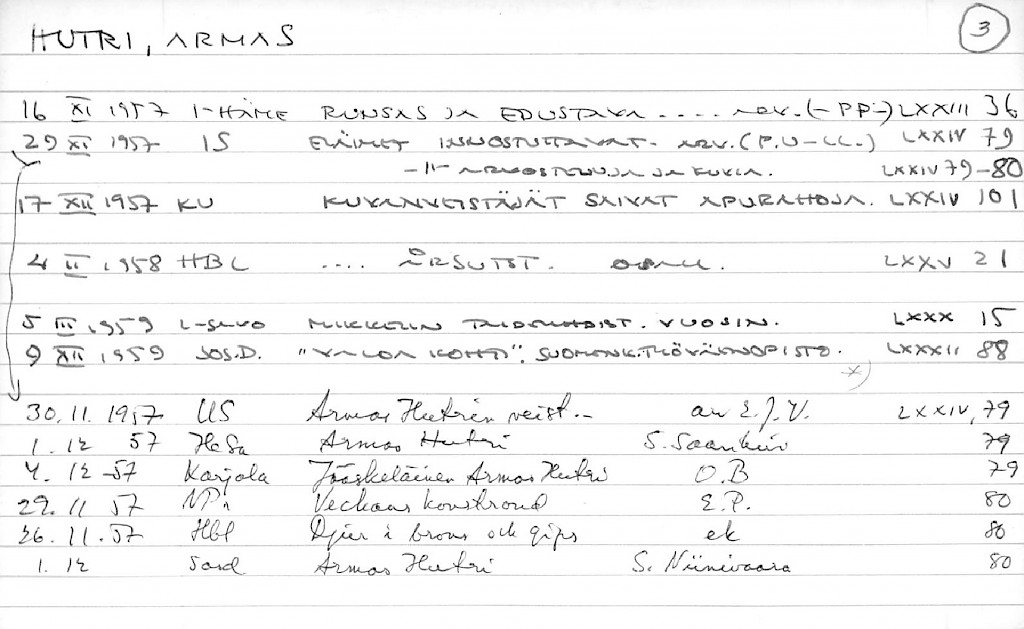 HUTRI, ARMAS 3
16 XI 1957 I-HÄME RUNSAS JA EDUSTAVA .... ARV. (-PP-) LXXIII 36
29 XI 1957 IS ELÄIMET INNOSTUTTAVAT. ARV. (P.U-LL.) LXXIV 79
-"- ARVOSTELUJA JA KUVIA. LXXIV 79-80
17 XII 1957 KU KUVANVEISTÄJÄT SAIVAT APURAHOJA. LXXIV 101
4 II 1958 HBL .... ÅRSUTST. LXXV 21
5 III 1959 L-SAVO MIKKELIN TAIDEYHDIST. VUOSIN. LXXX 15
9 XII 1959 SOS.D. "VALOA KOHTI", SUOMENK. TYÖVÄENOPISTO. LXXXII 88
*)
30.11.1957 US Armas Hutrin veist.- arv E.J.V. LXXIV, 79
1.12 57 HeSa Armas Hutri S. Saarikivi 79
4.12-57 Karjala Jääskeläinen Armas Hutri O.B 79
29.11 57 NPr Veckans konstrond E.P. 80
26.11.57 Hbl Djur i brons och gips ek 80
1.12 Sosd Armas Hutri S. Niinivaara 80